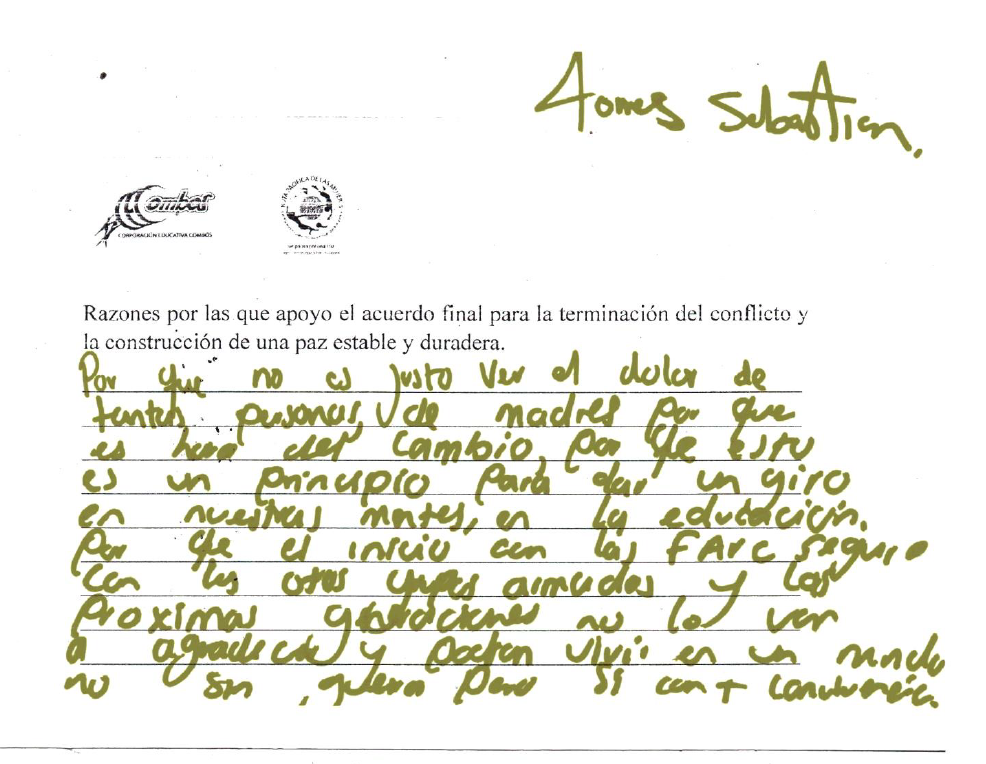 Sebastian.
Combos
CORPORACIÓN EDUCATIVA COMBOS
RUTA PACIFICA DE LAS MUJERES
Razones por las que apoyo el acuerdo final para la terminación del conflicto y
la construcción de una paz estable y duradera.
Por que no es justo ver el dolor de
tantas personas, de madres por que
es hora del cambio, por que esto
es un principio para dar un giro
en nuestras mentes, en la educación.
Por que el inicio con las FARC seguiro
con los otros grupos armados y las
proximas generaciones no lo van
a agradecer y podran vivir en un mundo
no sin guerra pero si con + convivencia.